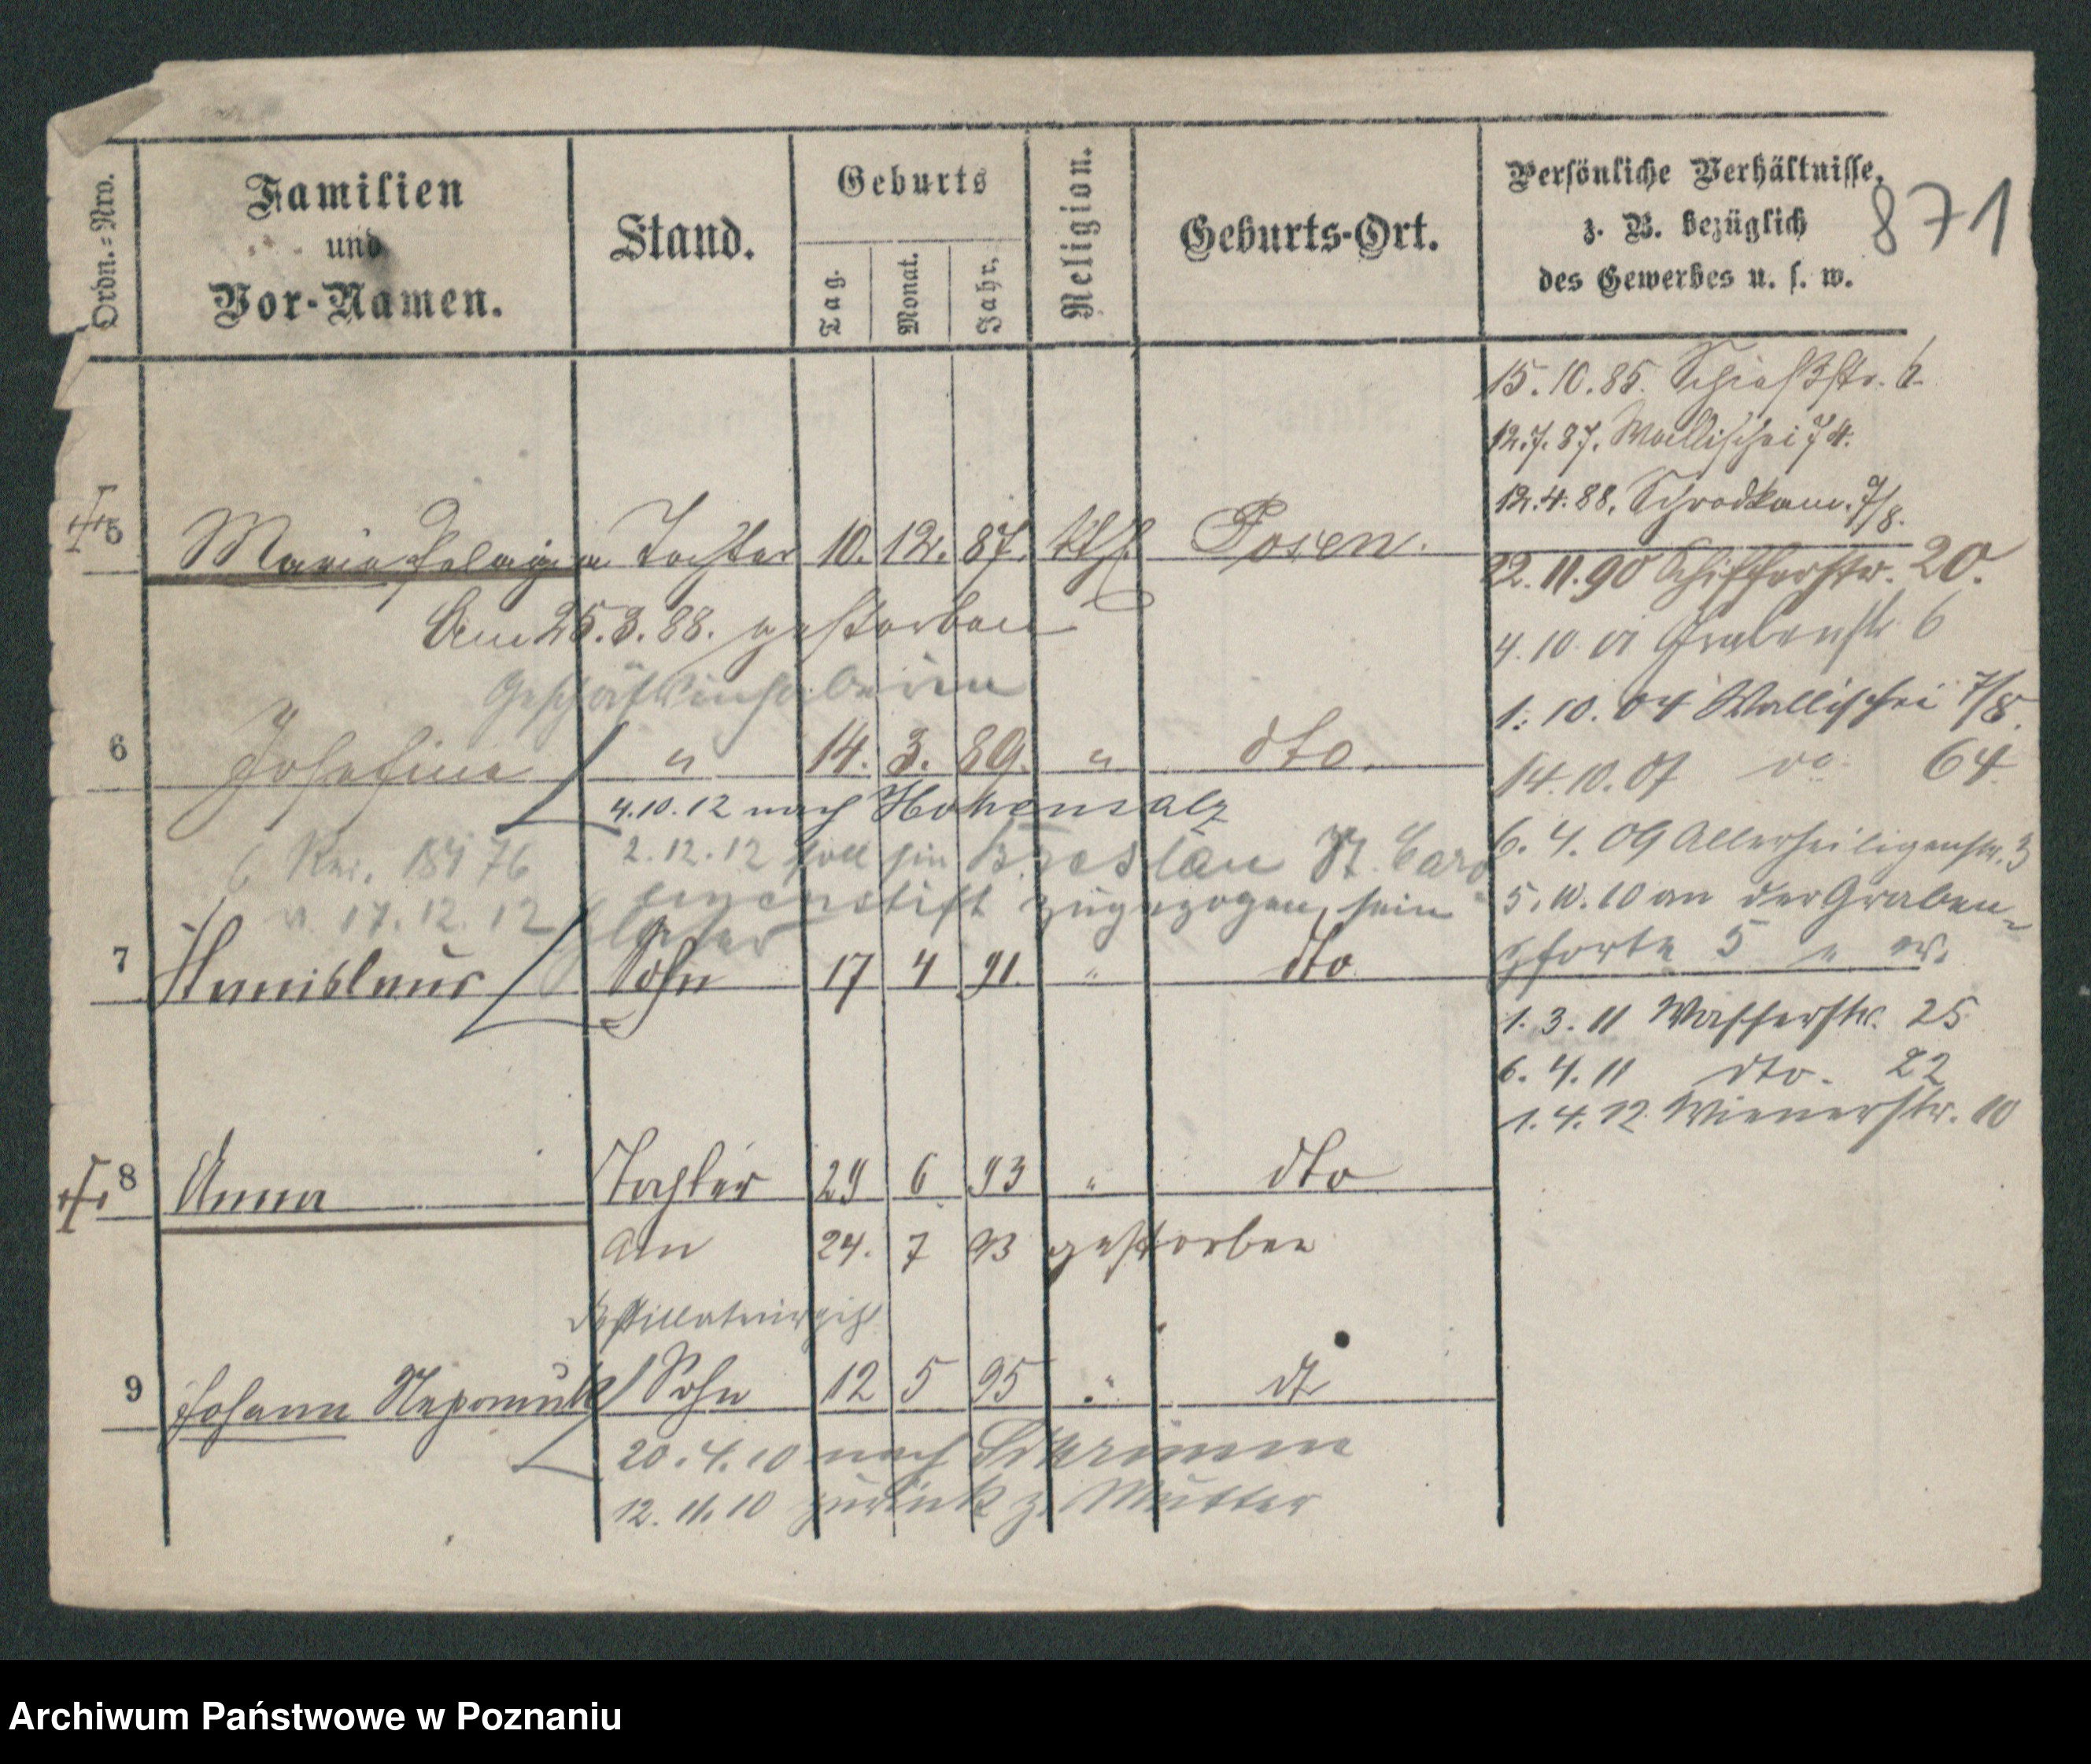 Ordn.=Nro.
Familien
und
Vor-Namen.
Stand.
Geburts
Tag.
Monat.
Jahr.
Religion.
Geburts-Ort.
Persönliche Verhältnisse,
z. B. bezüglich
des Gewerbes u. s. w.
871
15.10.85. Schießstr. 6.
12.7.87. Wallischei 74.
12.4.88. Schrodkam. 7/8.
5 Maria Pelagia Tochter 10. 12. 87. kth. Posen.
22.11.90 Schifferstr. 20.
Am 25.3.88. gestorben
4.10.01 Grabenstr 6
Geschäftsinhaberin
1.10.04 Wallischei 7/8.
6 Josefine " 14. 3. 89. " dto.
14.10.07 do. 64
4.10.12 nach Hohensalz
6.4.09 Allerheiligenstr. 3
2.12.12 soll in Breslau St. Caro
184 76
v. 17.12.12
linenstift zugezogen sein
5.10.10 an der Graben-
pforte 5
7 Stanislaus Sohn 17 4 91. " dto
1.3.11 Wasserstr. 25
6.4.11 dto. 22
1.4.12 Wienerstr. 10
8 Anna Tochter 29 6 93 " dto
am 24. 7 93 gestorben
9 Johann Nepomuk Sohn 12 5 95 " dt
20.4.10 nach Schrimm
12.11.10 zurück z. Mutter
Archiwum Państwowe w Poznaniu